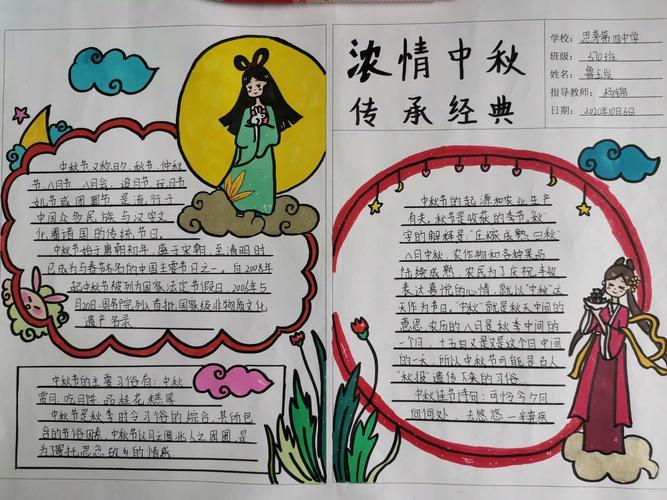 浓情中秋
传承经典
学校：思茅第四中学
班级：370班
姓名：鲁玉
指导教师：杨
日期：2020年10月6日
中秋节又称月夕、秋节、仲秋
节、八月节、八月会、追月节、玩月节
女儿节或团圆节，是流行于
中国众多民族与汉字文
化圈诸国的传统节日。
中秋节始于唐朝初年，盛于宋朝，至清明时
已成为与春节齐名的中国主要节日之一。自2008年
起中秋节被列为国家法定节假日，2006年5
月20日，国务院列入首批国家级非物质文化
遗产名录
中秋节的主要习俗有：中秋
赏月、吃月饼、品桂花糕等
中秋节是秋季时令习俗的综合，其所包
含的节俗因素，中秋节以月之圆兆人之团圆，是
为寄托思念故乡的情感
中秋节的起源和农业生产
有关。秋节是收获的季节，"秋"
字的解释是："庄稼成熟曰秋"
八月中秋，农作物和各种果品
陆续成熟，农民为了庆祝丰收
表达喜悦的心情，就以"中秋"这
天作为节日。"中秋"就是秋天中间的
意思，农历的八月是秋季中间的
一个月，十五日又是又是这个日中间
的一天，所以中秋节可能是古人
"秋报"遗传下来的习俗
中秋佳节诗句：可怜今夕月
向何处，去悠悠